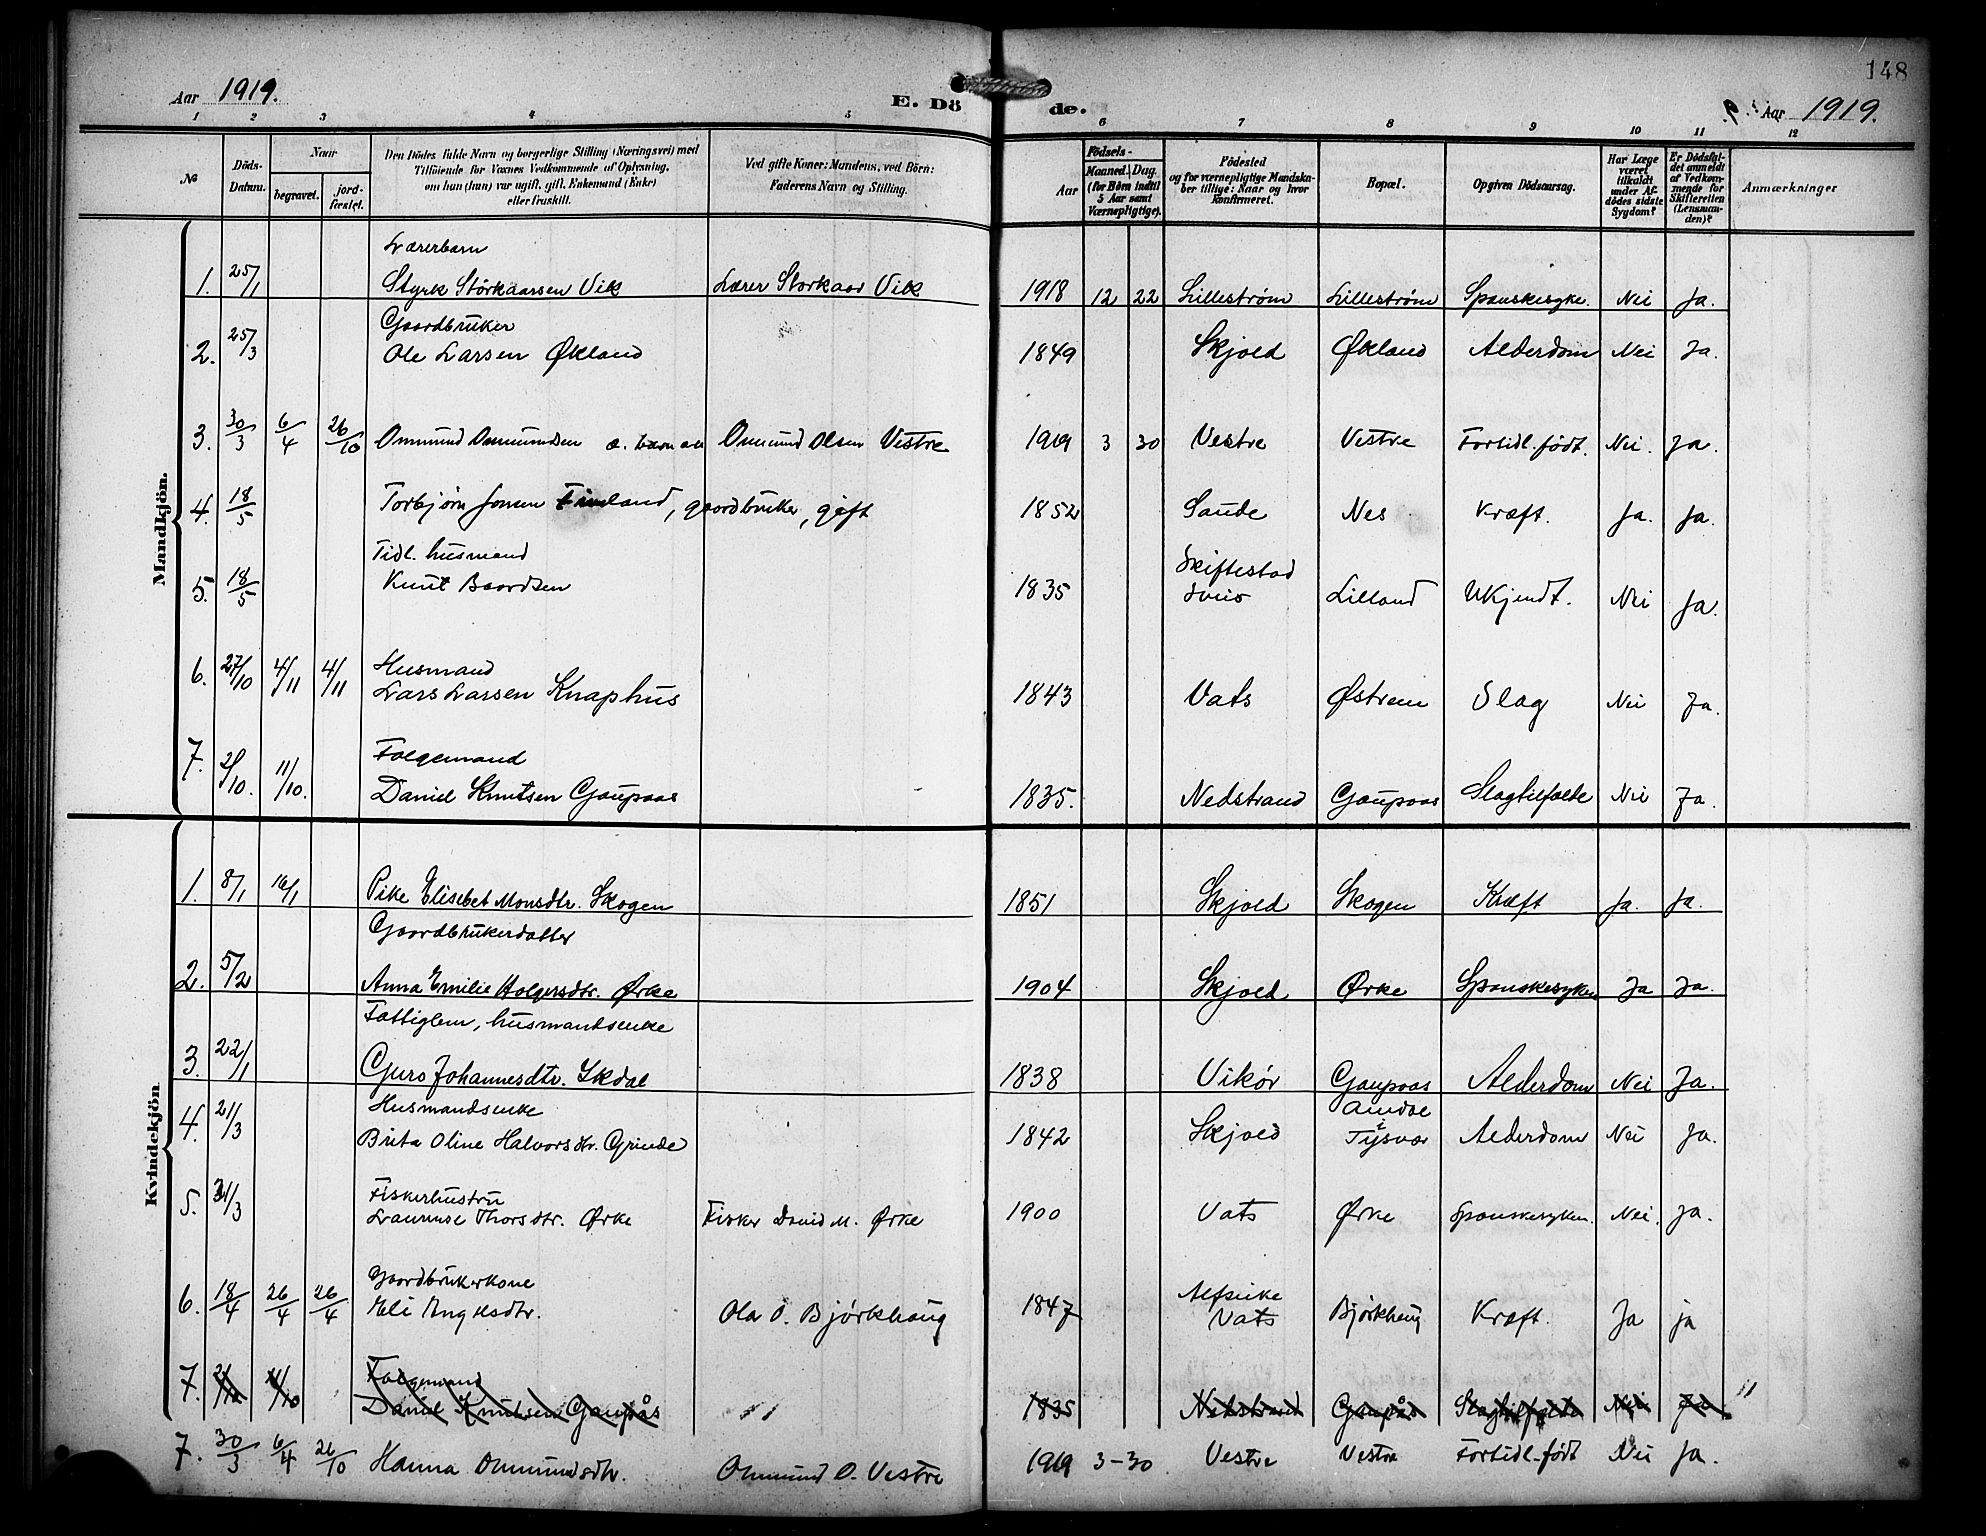 148
Aar 1919.
E. Dö de.
Aar 1919.
1 2 3 4 5 6 7 8 9 10 11 12
№
Döds-Datum.
Naar
begravet.
jord-fæstet.
Den Dödes fulde Navn og borgerlige Stilling (Næringsvei) med
Tilföiende for Voxnes Vedkommende af Oplysning,
om hun (han) var ugift, gift, Enkemand (Enke)
eller fraskilt.
Ved gifte Koner: Mandens, ved Börn:
Faderens Navn og Stilling.
Födsels-
Aar
Maaned. Dag.
(for Börn indtil
5 Aar samt
Værnepligtige).
Födested
og for værnepligtige Mandska-
ber tillige: Naar og hvor
konfirmeret.
Bopæl.
Opgiven Dödsaarsag.
Har Læge
været
tilkaldt
under Af-
dödes sidste
Sygdom?
Er Dödsfal-
det anmeldt
af Vedkom-
mende for
Skifteretten
(Lensman-
den)?
Anmærkninger
Mandkjön.
Lærerbarn
1. 25/1 Styrk Störkaarsen Vik Lærer Storkaar Vik 1918 12 22 Lilleström Lilleström Spanskesyke. Nei Ja.
Gaardbruker
2. 25/3 Ole Larsen Økland 1849 Skjold Økland Alderdom Nei Ja.
3. 30/3 6/4 26/10 Ommund Ommundsen æ. barn av Ommund Olsen Vestre 1919 3 30 Vestre Vestre Fortidl. født. Nei. Ja.
4. 18/5 Torbjørn Jonsen land, gaardbruker, gift 1852 Saude Nes Kræft. Ja. Ja.
Tidl. husmand
5. 18/5 Knut Baardsen 1835 Skiftestad Lilland Ukjendt. Nei Ja.
Husmand
6. 27/10 4/11 4/11 Lars Larsen Knaphus 1843 Vats Østrem Slag Nei Ja.
Følgemand
7. 2/10. 11/10. Daniel Knutsen Gaupaas 1835. Nedstrand Gaupaas Slagtilfælde Nei Ja.
Kvindekjön
1. 8/1 16/1 Pike Elisebet Monsdtr. Skogen 1851 Skjold Skogen Kræft Ja. Ja.
Gaardbrukerdatter
2. 5/2 Anna Emilie Holgersdtr. Ørke 1904 Skjold Ørke Spanskesyken Ja Ja.
Fattiglem, husmandsenke
3. 22/1 Guro Johannesdtr. Ekdal 1838 Vikör Gaupaas Alderdom Nei Ja.
Husmandsenke
4. 21/3 Brita Oline Halvorsdtr. Grinde 1842 Skjold Amdal i Tysvær Alderdom Nei Ja.
Fiskerhustru
5. 31/3 Laurense Thorsdtr. Ørke Fisker David M. Ørke 1900 Vats Ørke Spanskesyken. Nei. Ja.
Gaardbrukerkone
6. 18/4 26/4 26/4 Eli Engelsdtr. Ola O. Bjørkhaug 1847 Vats Bjørkhaug Kræft. Ja ja
Følgemand
7. 2/10 11/10 Daniel Knutsen Gaupås " 1835 Nedstrand Gaupås Slagtilfælde Nei Ja. "
7. 30/3 6/4 26/10 Hanna Ommundsdtr. Ommund O. Vestre 1919 3-30 Vestre Vestre Fortidl. født Nei Ja.